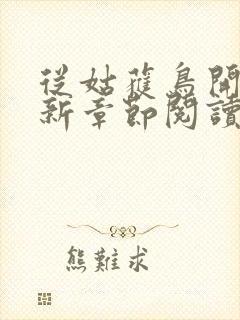 從姑蓷鳥開
新章節閱讀
熊難求